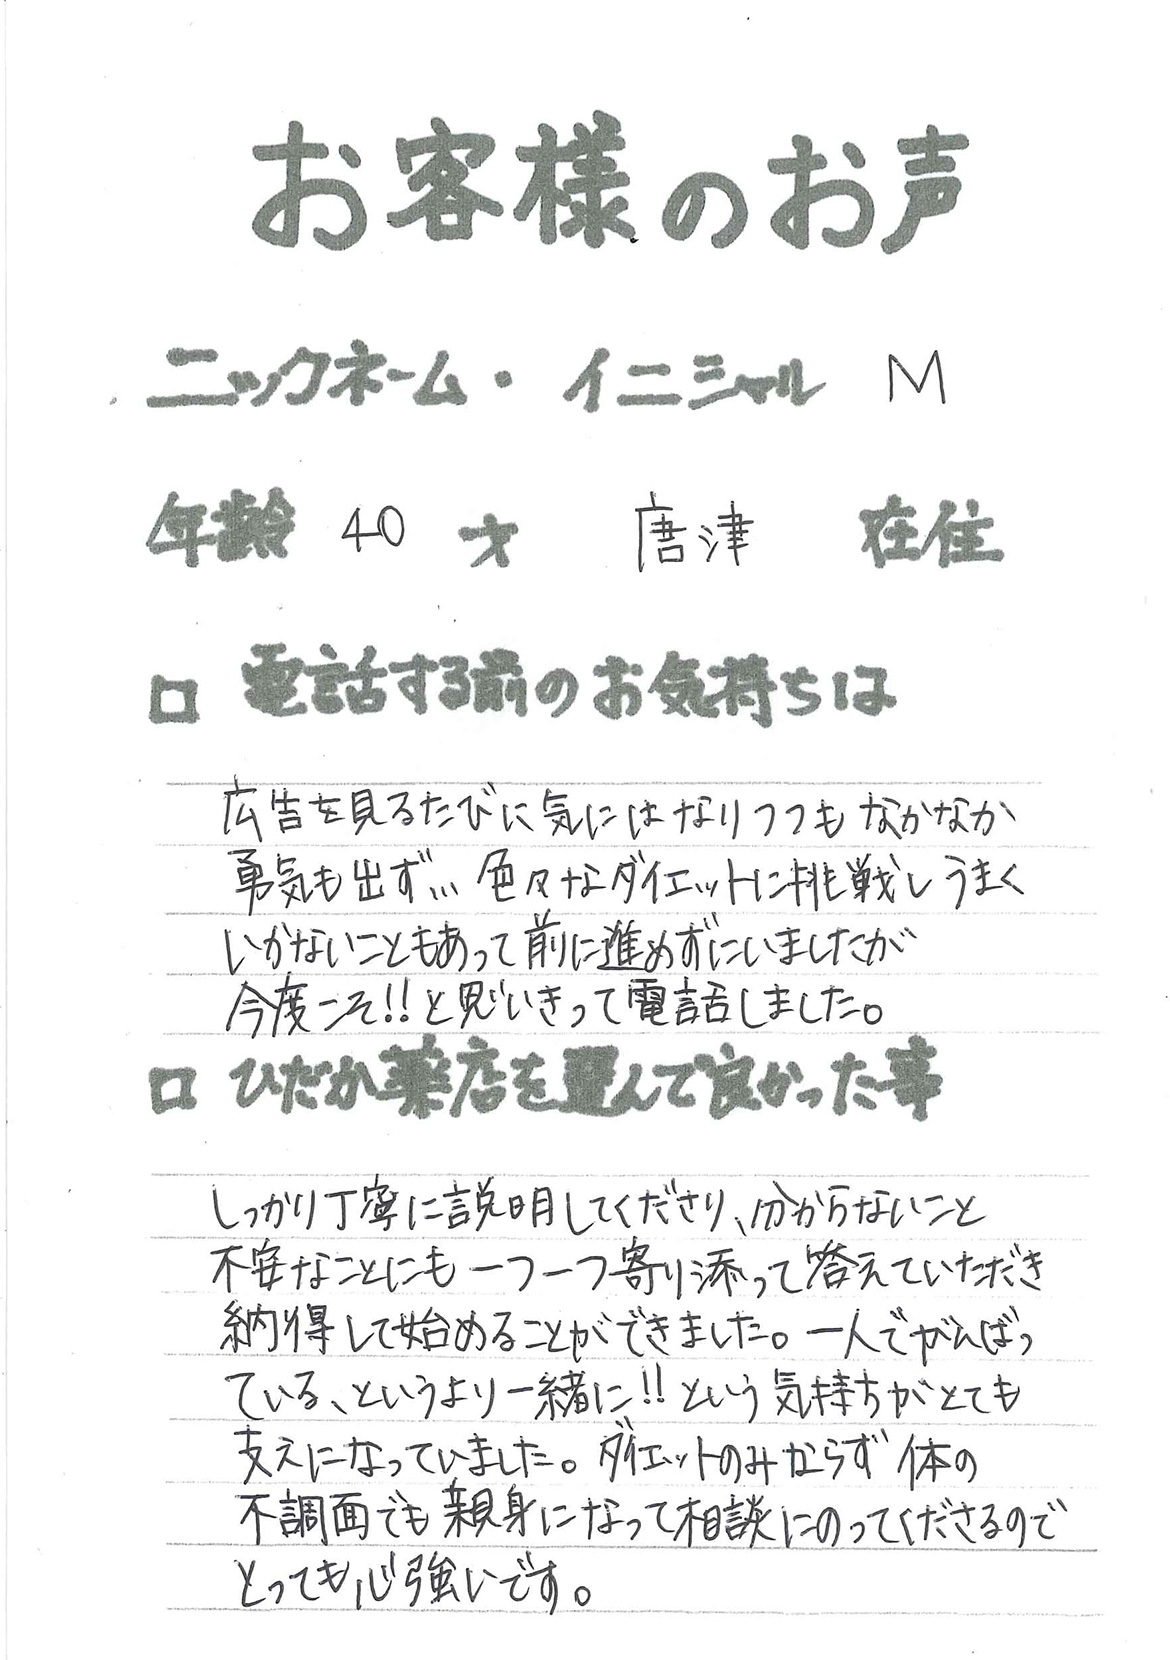 お客様のお声
ニックネーム・イニシャル M
年齢 40 才 唐津 在住
□ 電話する前のお気持ちは
広告を見るたびに気にはなりつつもなかなか
勇気も出ず… 色々なダイエットに挑戦しうまく
いかないこともあって前に進めずにいましたが
今度こそ!!と思いきって電話しました。
□ ひだか薬店を選んで良かった事
しっかり丁寧に説明してくださり、分からないこと
不安なことにも一つ一つ寄り添って答えていただき
納得して始めることができました。一人でがんばっ
ている、というより一緒に!!という気持ちがとても
支えになっていました。ダイエットのみならず体の
不調面でも親身になって相談にのってくださるので
とっても心強いです。